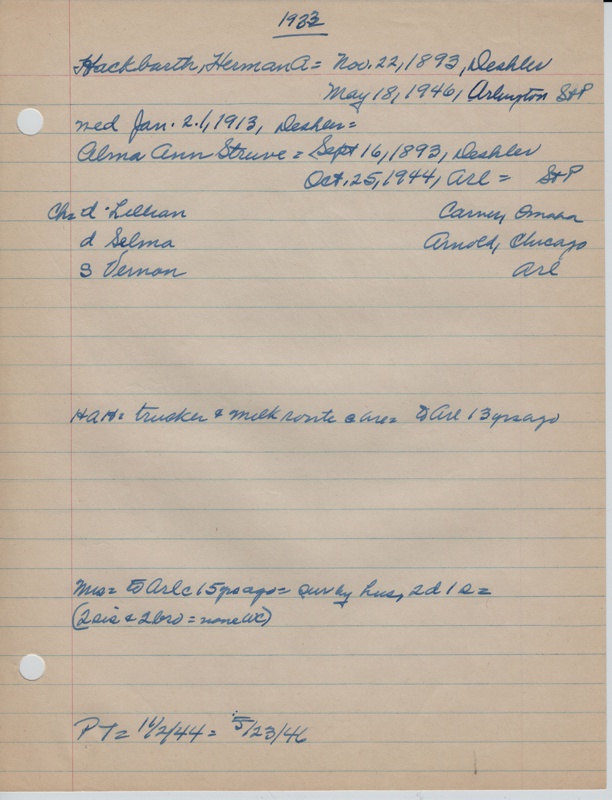 1933
Hackbarth, Herman A = Nov. 22, 1893, Deshler
May 18, 1946, Arlington S+P
wed Jan. 21, 1913, Deshler =
Alma Ann Struve = Sept 16, 1893, Deshler
Oct. 25, 1944, Arl = S+P
Ch = d Lillian Carney, Omaha
d Selma Arnold, Chicago
s Vernon Arl
HAH = trucker & milk route c are = to Arl 13 yrs ago
Mrs = to Arl c 15 yrs ago = sur by hus, 2 d 1 s =
(2 sis & 2 bro = none WC)
PT = 11/2/44 = 5/23/46